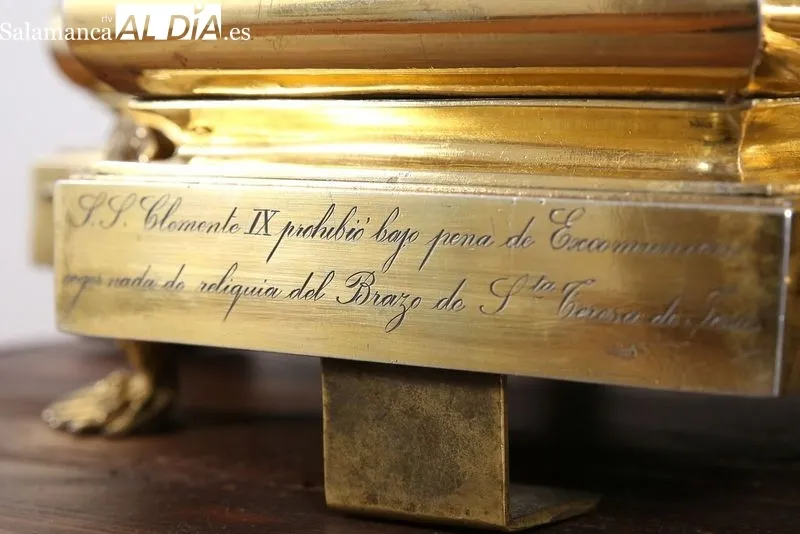 Salamanca rtv AL DÍA.es
S.S. Clemente IX prohibió bajo pena de Excomunion
coger nada de reliquia del Brazo de Sta Teresa de Jesus